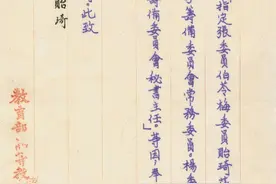 指定張委員伯苓梅委員貽琦
籌備委員會常務委員。楊委
籌備委員會秘書主任。」等因,奉
此致
貽琦
教育部